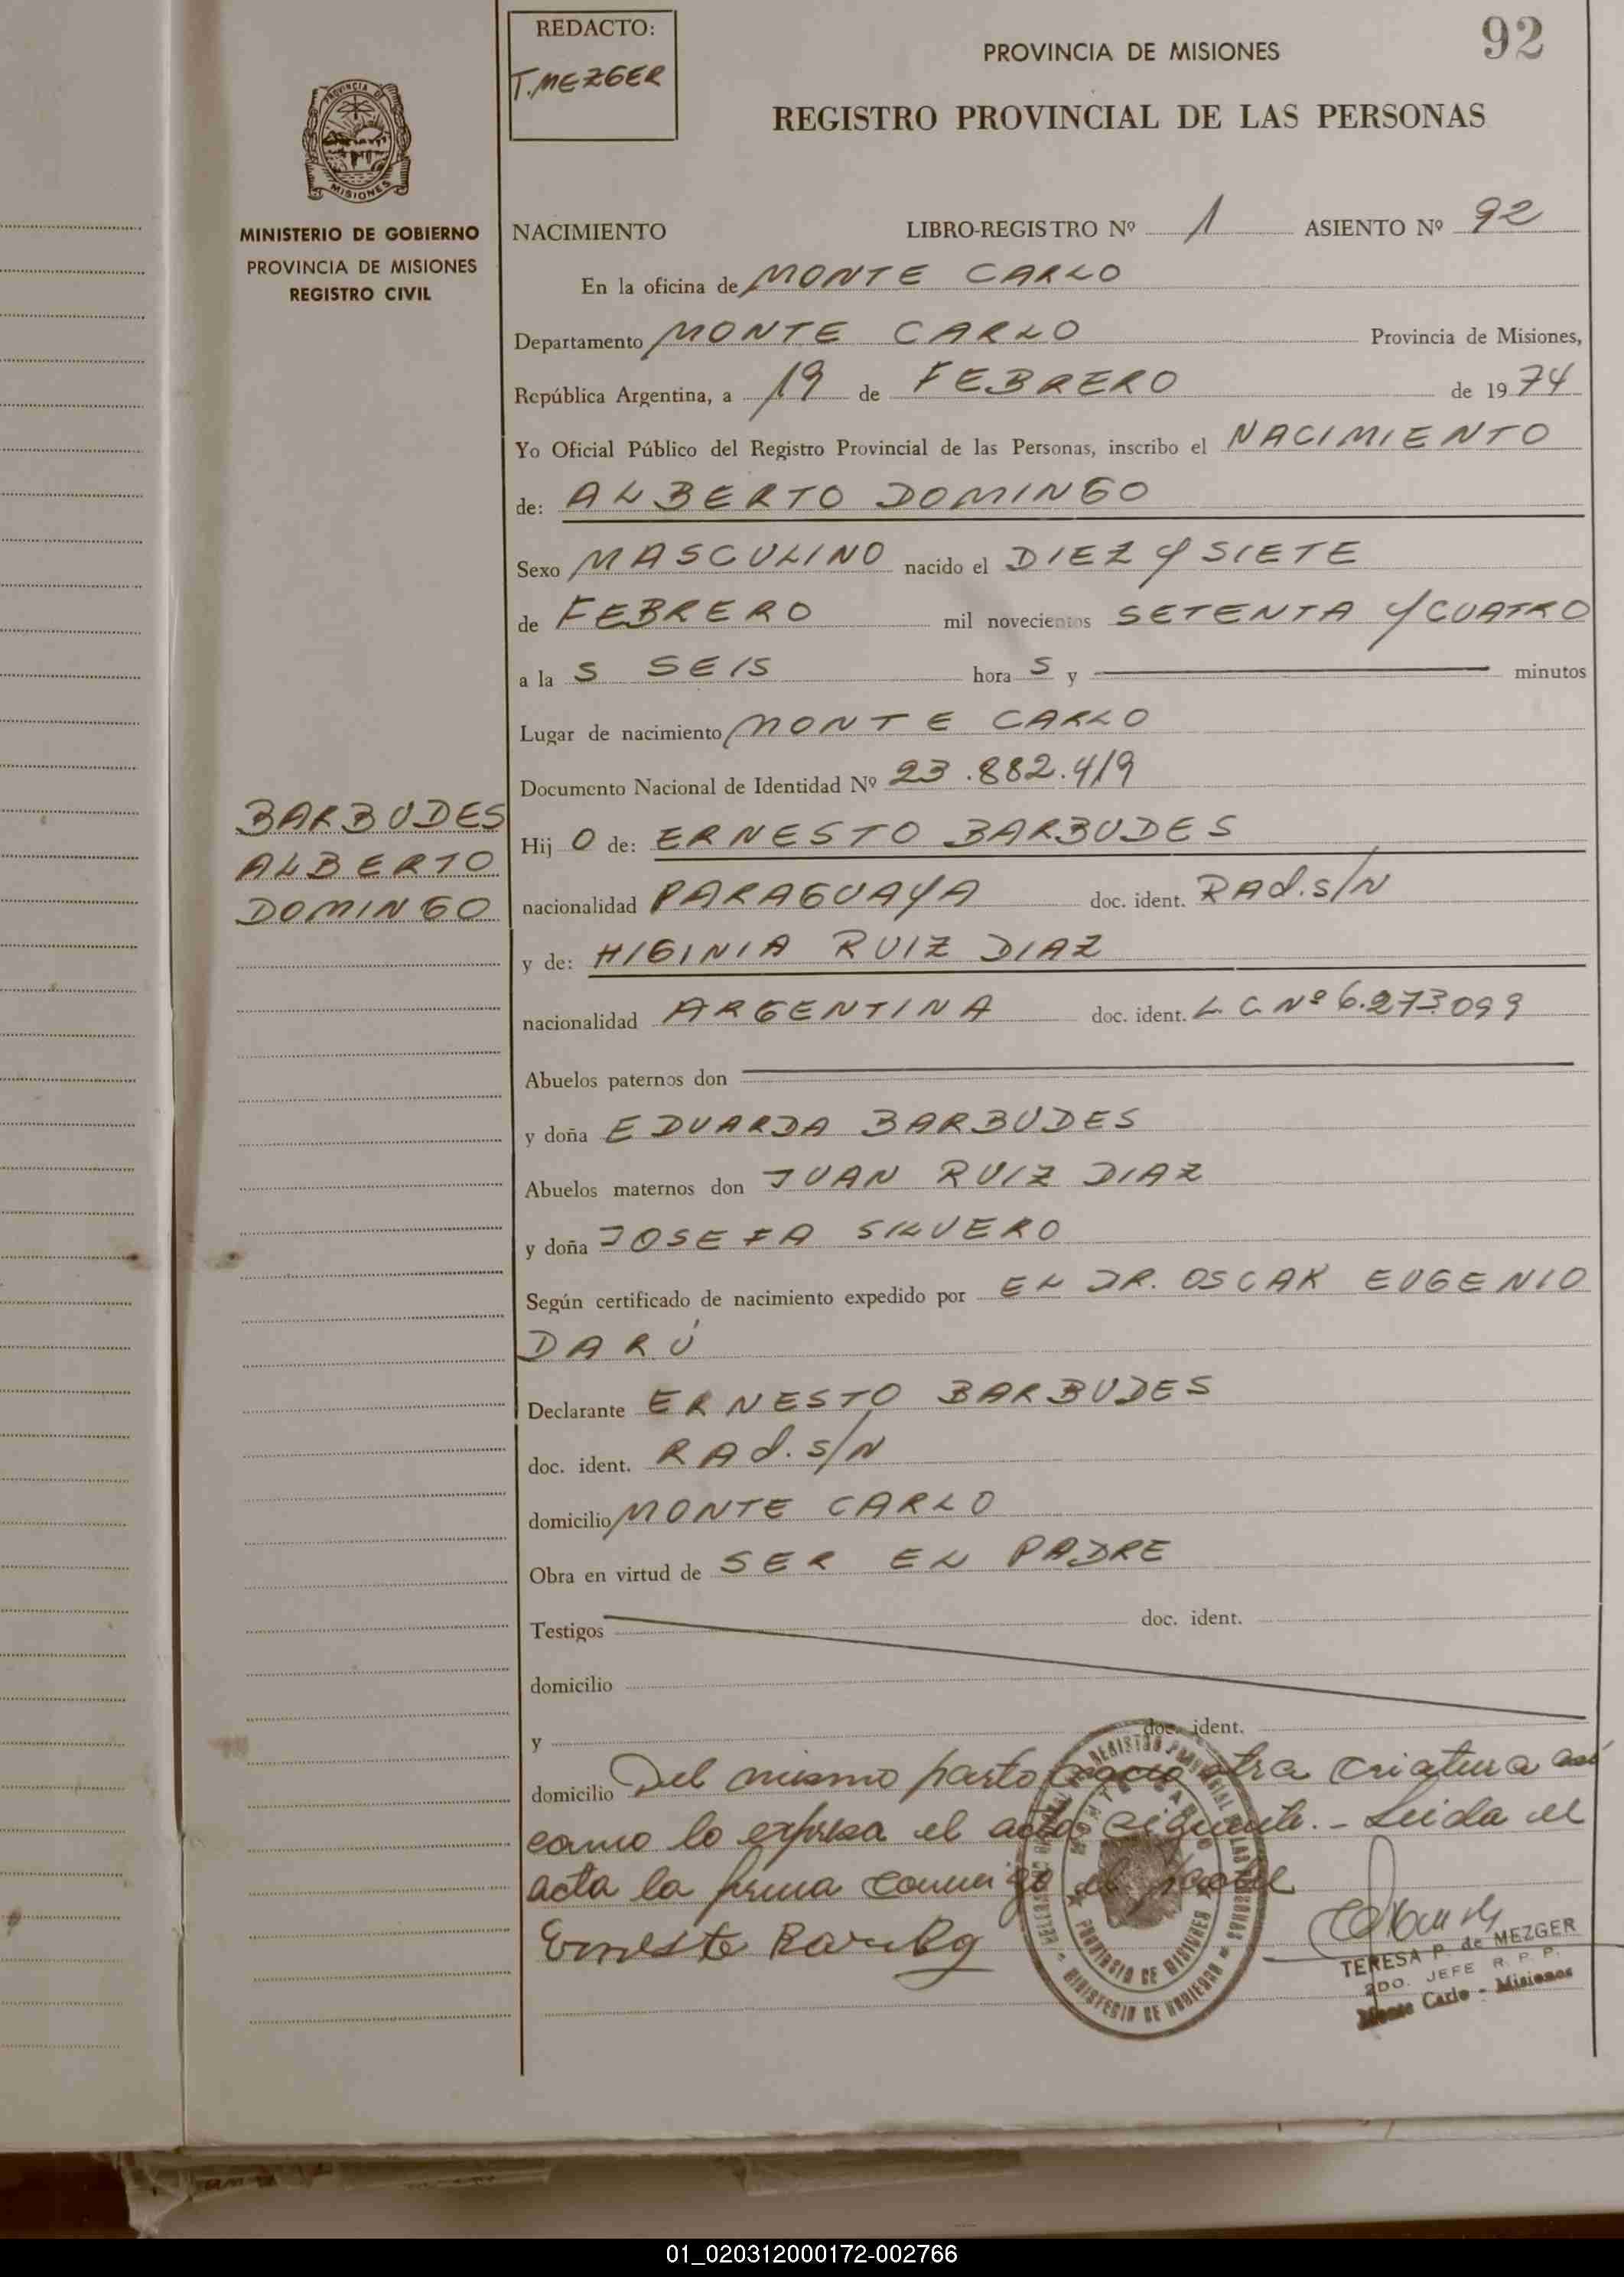 REDACTO:
T. MEZGER
PROVINCIA DE MISIONES
92
REGISTRO PROVINCIAL DE LAS PERSONAS
PROVINCIA DE
MISIONES
MINISTERIO DE GOBIERNO
PROVINCIA DE MISIONES
REGISTRO CIVIL
NACIMIENTO LIBRO-REGISTRO Nº 1 ASIENTO Nº 92
En la oficina de MONTE CARLO
Departamento MONTE CARLO Provincia de Misiones,
República Argentina, a 19 de FEBRERO de 1974
Yo Oficial Público del Registro Provincial de las Personas, inscribo el NACIMIENTO
de: ALBERTO DOMINGO
Sexo MASCULINO nacido el DIEZ Y SIETE
de FEBRERO mil novecientos SETENTA Y CUATRO
a la S SEIS hora S y minutos
Lugar de nacimiento MONTE CARLO
Documento Nacional de Identidad Nº 23.882.419
BARBUDES
ALBERTO
DOMINGO
Hij O de: ERNESTO BARBUDES
nacionalidad PARAGUAYA doc. ident. RAd. s/N
y de: HIGINIA RUIZ DIAZ
nacionalidad ARGENTINA doc. ident. L. C. Nº 6.273.099
Abuelos paternos don
y doña EDUARDA BARBUDES
Abuelos maternos don JUAN RUIZ DIAZ
y doña JOSEFA SILVERO
Según certificado de nacimiento expedido por EL DR. OSCAR EUGENIO
DARÚ
Declarante ERNESTO BARBUDES
doc. ident. RAd. s/N
domicilio MONTE CARLO
Obra en virtud de SER EL PADRE
Testigos doc. ident.
domicilio
y doc. ident.
domicilio Del mismo parto nació otra criatura así
como lo expresa el acta siguiente. - Leida el
acta la firma conmigo el padre
Ernesto
REGISTRO PROVINCIAL DE LAS PERSONAS
MONTE CARLO
PROVINCIA DE MISIONES
MINISTERIO DE GOBIERNO
TERESA P. de MEZGER
2DO. JEFE R. P. P.
Monte Carlo - Misiones
01_020312000172-002766